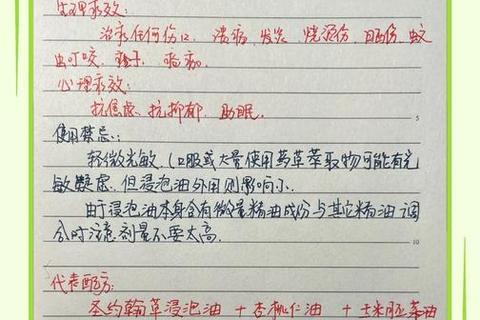 生理功效:
治疗任何伤口、溃疡、发炎、烧烫伤、日晒伤、蚊
虫叮咬、疹子、疱疹.
心理功效:
抗焦虑、抗抑郁、助眠.
使用禁忌:
轻微光敏(口服或大量使用药草萃取物可能有光
敏疑虑,但浸泡油外用则影响小.
由于浸泡油本身含有微量精油成份与其它精油调
合时注意剂量不要太高.
代表配方:
圣约翰草浸泡油 + 杏桃仁油 +
5
10